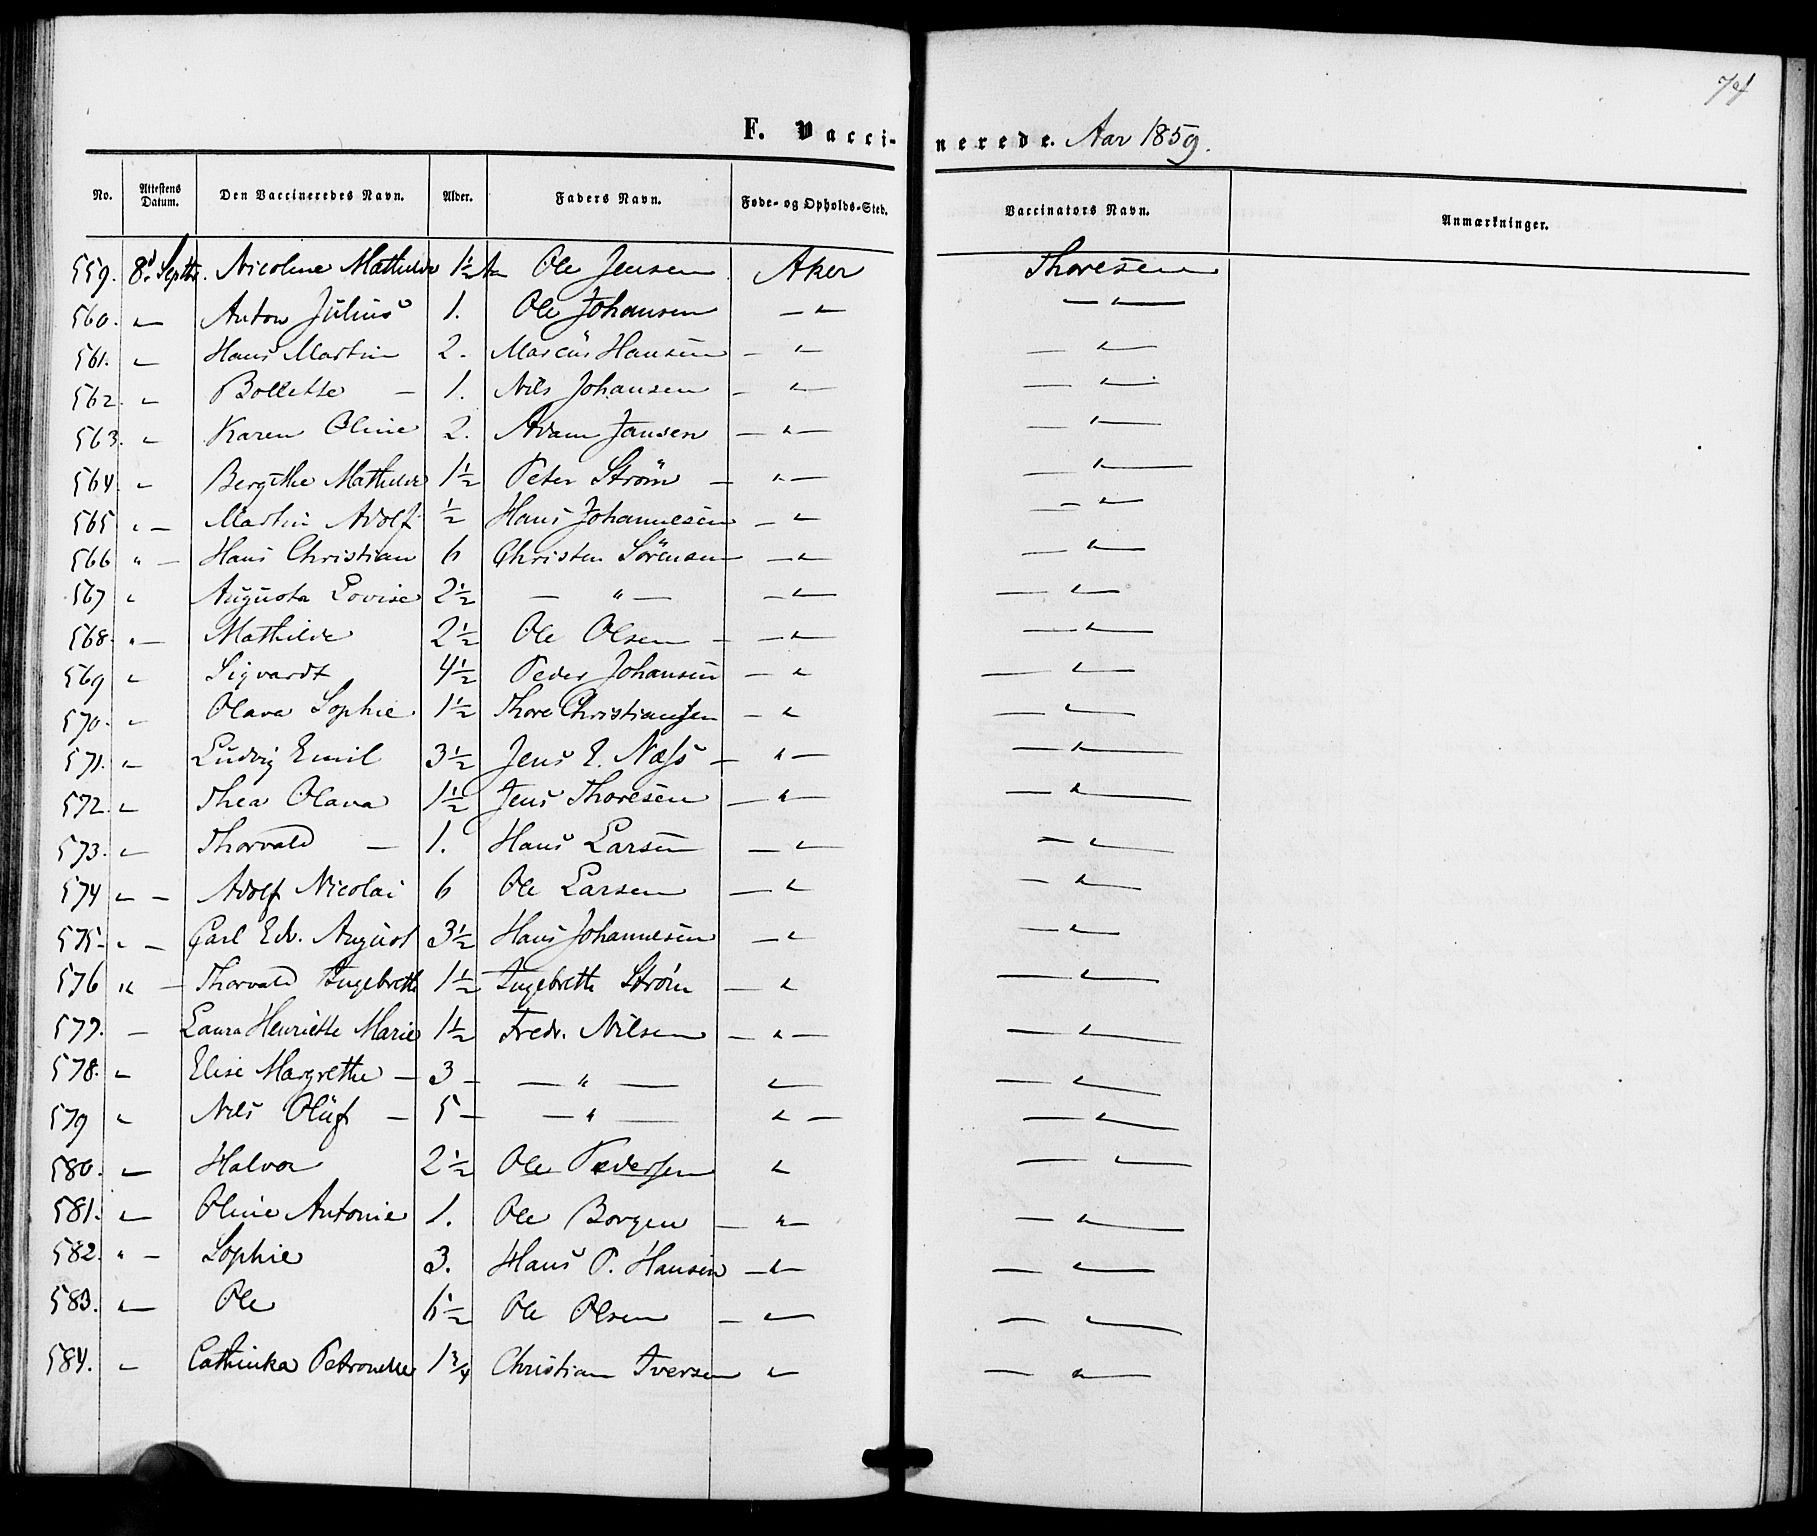 74
F. Vaccinerede. Aar 1859.
No. Attestens Datum. Den Vaccineredes Navn. Alder. Faders Navn. Føde- og Opholds-Sted. Vaccinators Navn. Anmærkninger.
559. 8d Septbr. Nicoline Mathilde 1½ Aar Ole Jensen Aker Thoresen
560. " Anton Julius 1. Ole Johansen — " — "
561. " Hans Martin 2. Marcus Hansen — " — "
562. " Bollette — 1. Nils Johansen — " — "
563. " Karen Oline 2. Adam Jansen — " — — "
564. " Bergithe Mathilde 1½ Peter Strøm — " — — "
565 " — Martin Adolf ½ Hans Johannesen — " — "
566 " — Hans Christian 6 Christen Sörensen — " — "
567 " Augusta Lovise 2½ — " — — " — "
568. " — Mathilde 2½ Ole Olsen — — " — "
569 " Sigvardt 4½ Peder Johansen — " — "
570. " Olava Sophie 1½ Thore Christiansen — " — "
571. " Ludvig Emil 3½ Jens E. Næss — " — — "
572 " Thea Olava 1½ Jens Thoresen — " — — "
573. " Thorvald — 1. Hans Larsen — " — "
574 " — Adolf Nicolai 6 Ole Larsen — " — "
575 " — Carl Edv. August 3½ Hans Johannesen — " — "
576 " — Thorvald Ingebreth 1½ Ingebreth Strøm — " — "
577. — Laura Henriette Marie 1½ Fredr. Nilsen — " — — "
578. " Elise Margrethe — 3 — — " — " — "
579 " Nils Oluf — 5 — — " — " — — "
580. " Halvor 2½ Ole Pedersen " — "
581. " Oline Antonie 1. Ole Borgen — " — — "
582. " — Sophie 3. Hans P. Hansen — " — — "
583. " Ole 6½ Ole Olsen — " — "
584. " Cathinka Petronelle 1¾ Christian Iversen " — "